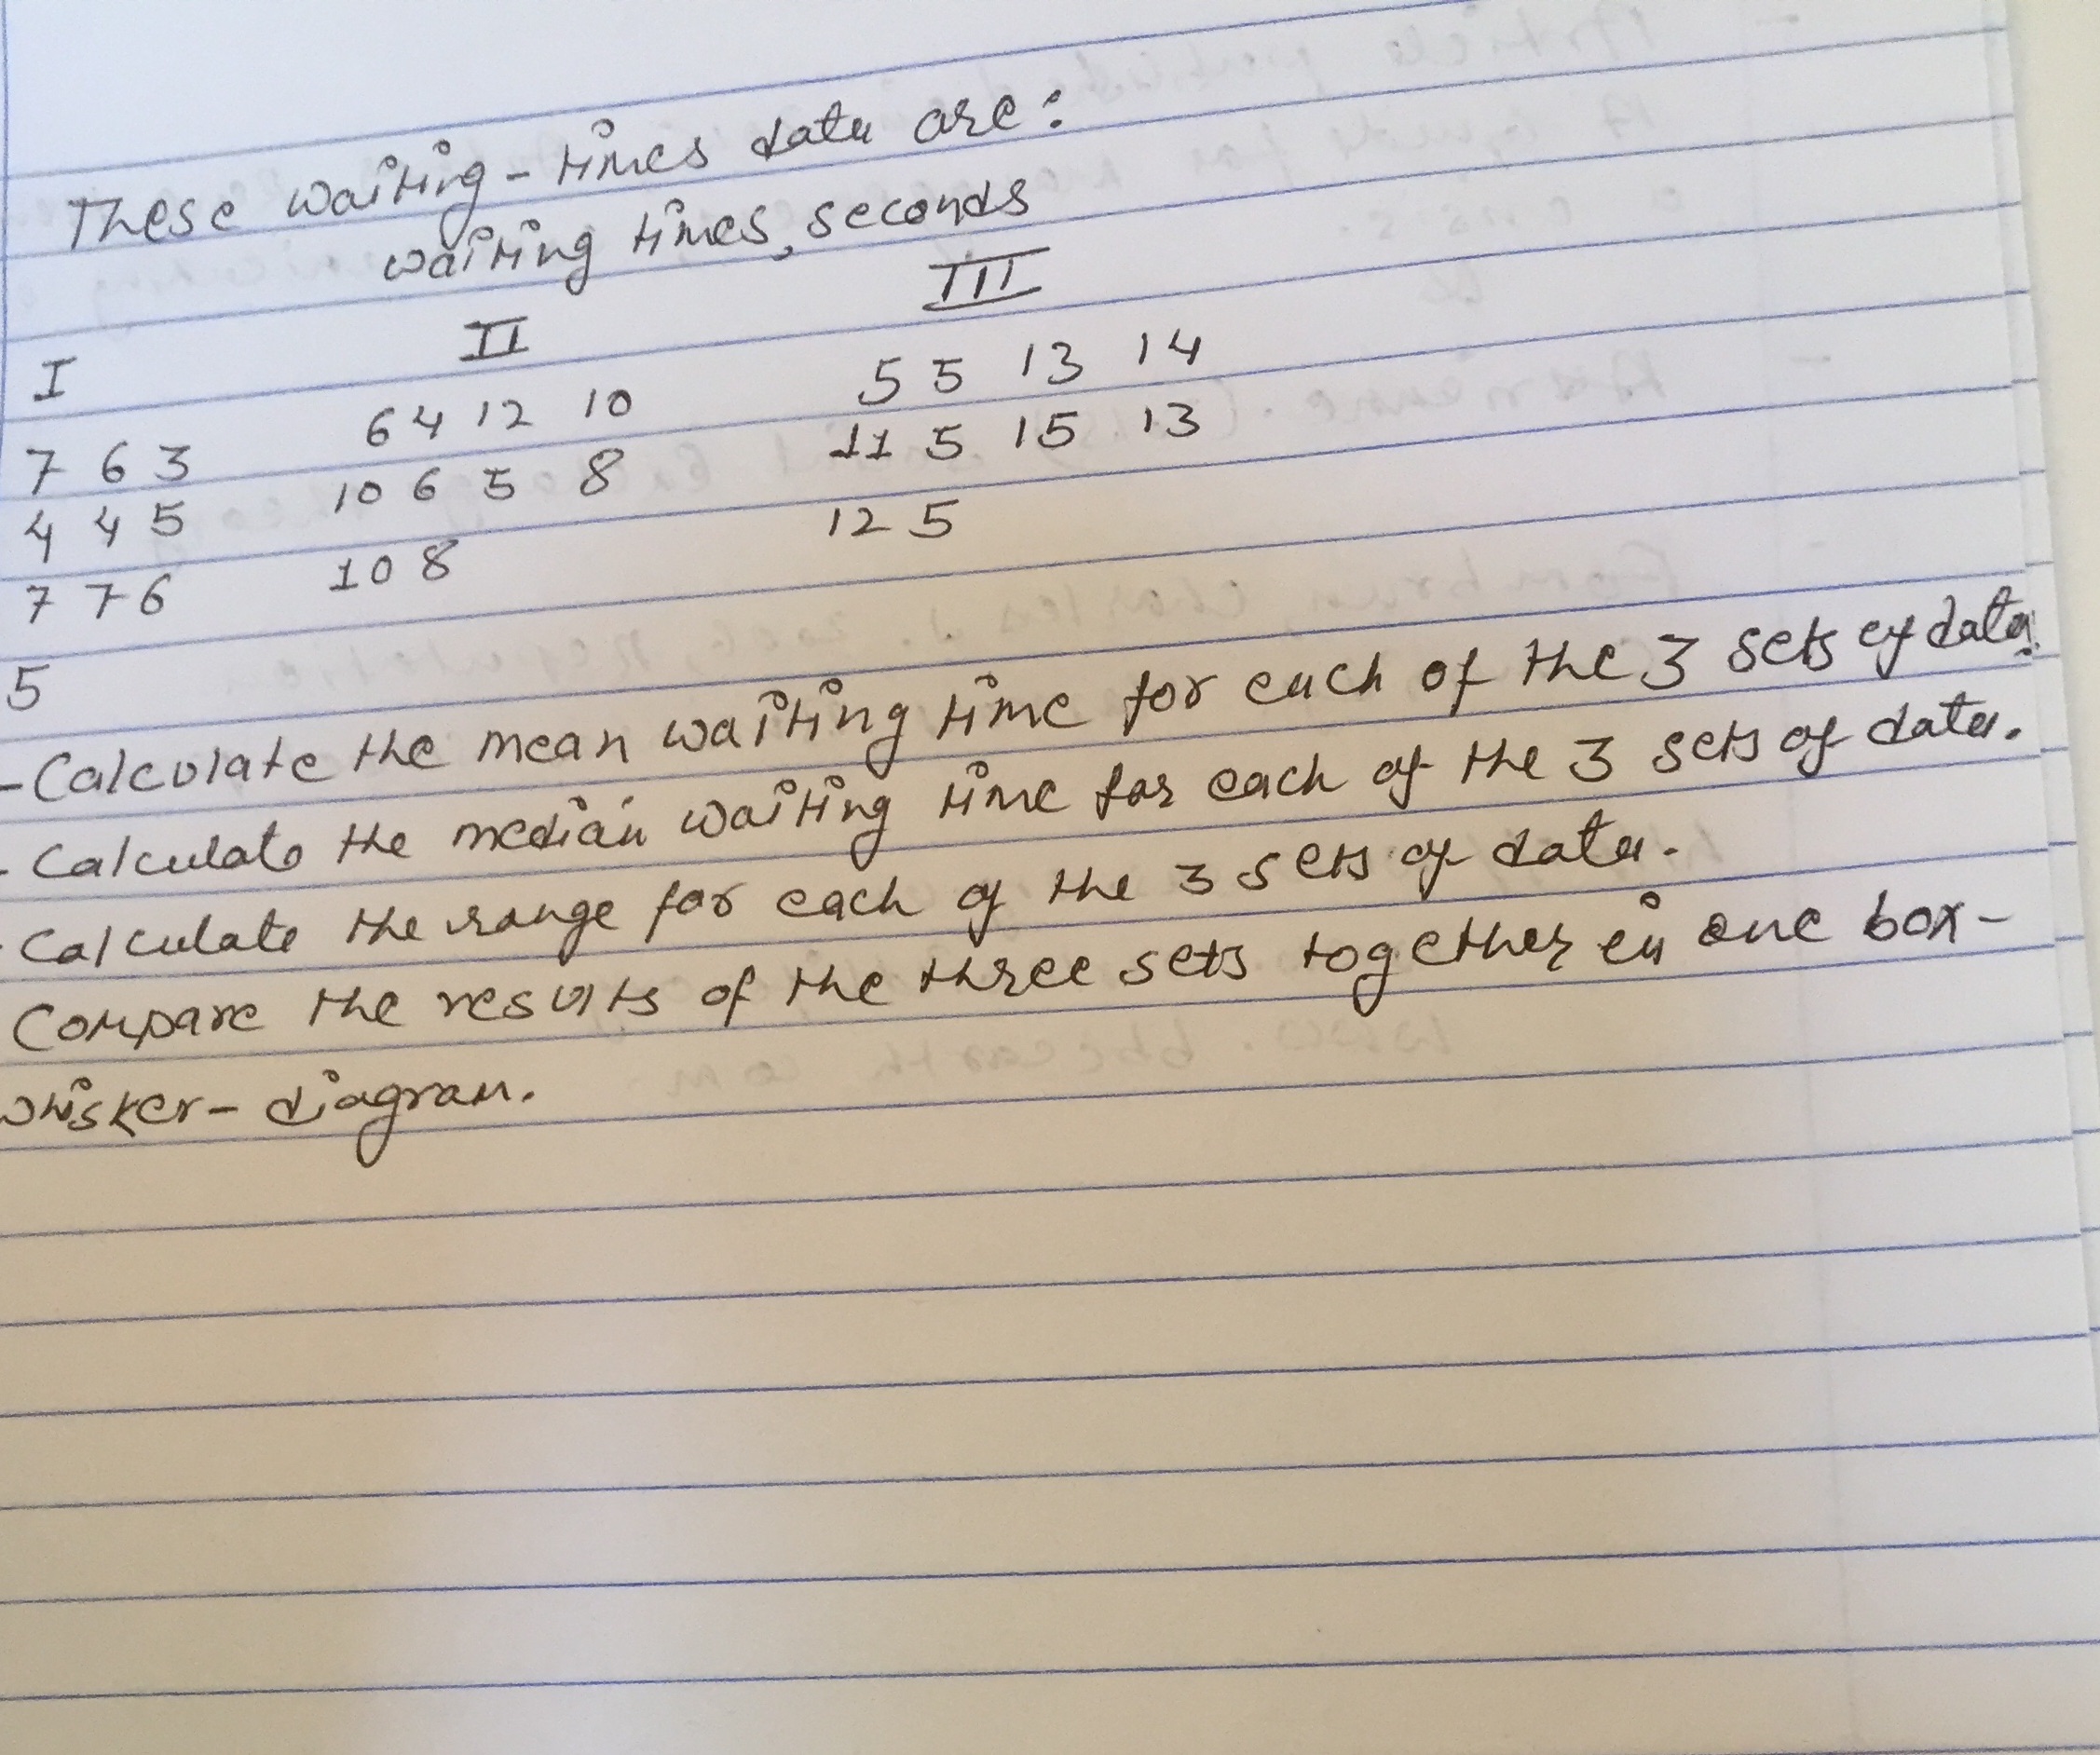 These waiting-times data are:
waiting times, seconds
I II III
7 6 3 6 4 12 10 5 5 13 14
4 4 5 10 6 5 8 11 5 15 13
7 7 6 10 8 12 5
5
-Calculate the mean waiting time for each of the 3 sets of data.
-Calculate the median waiting time for each of the 3 sets of data.
-Calculate the range for each of the 3 sets of data.
Compare the results of the three sets together in one box-
whisker-diagram.